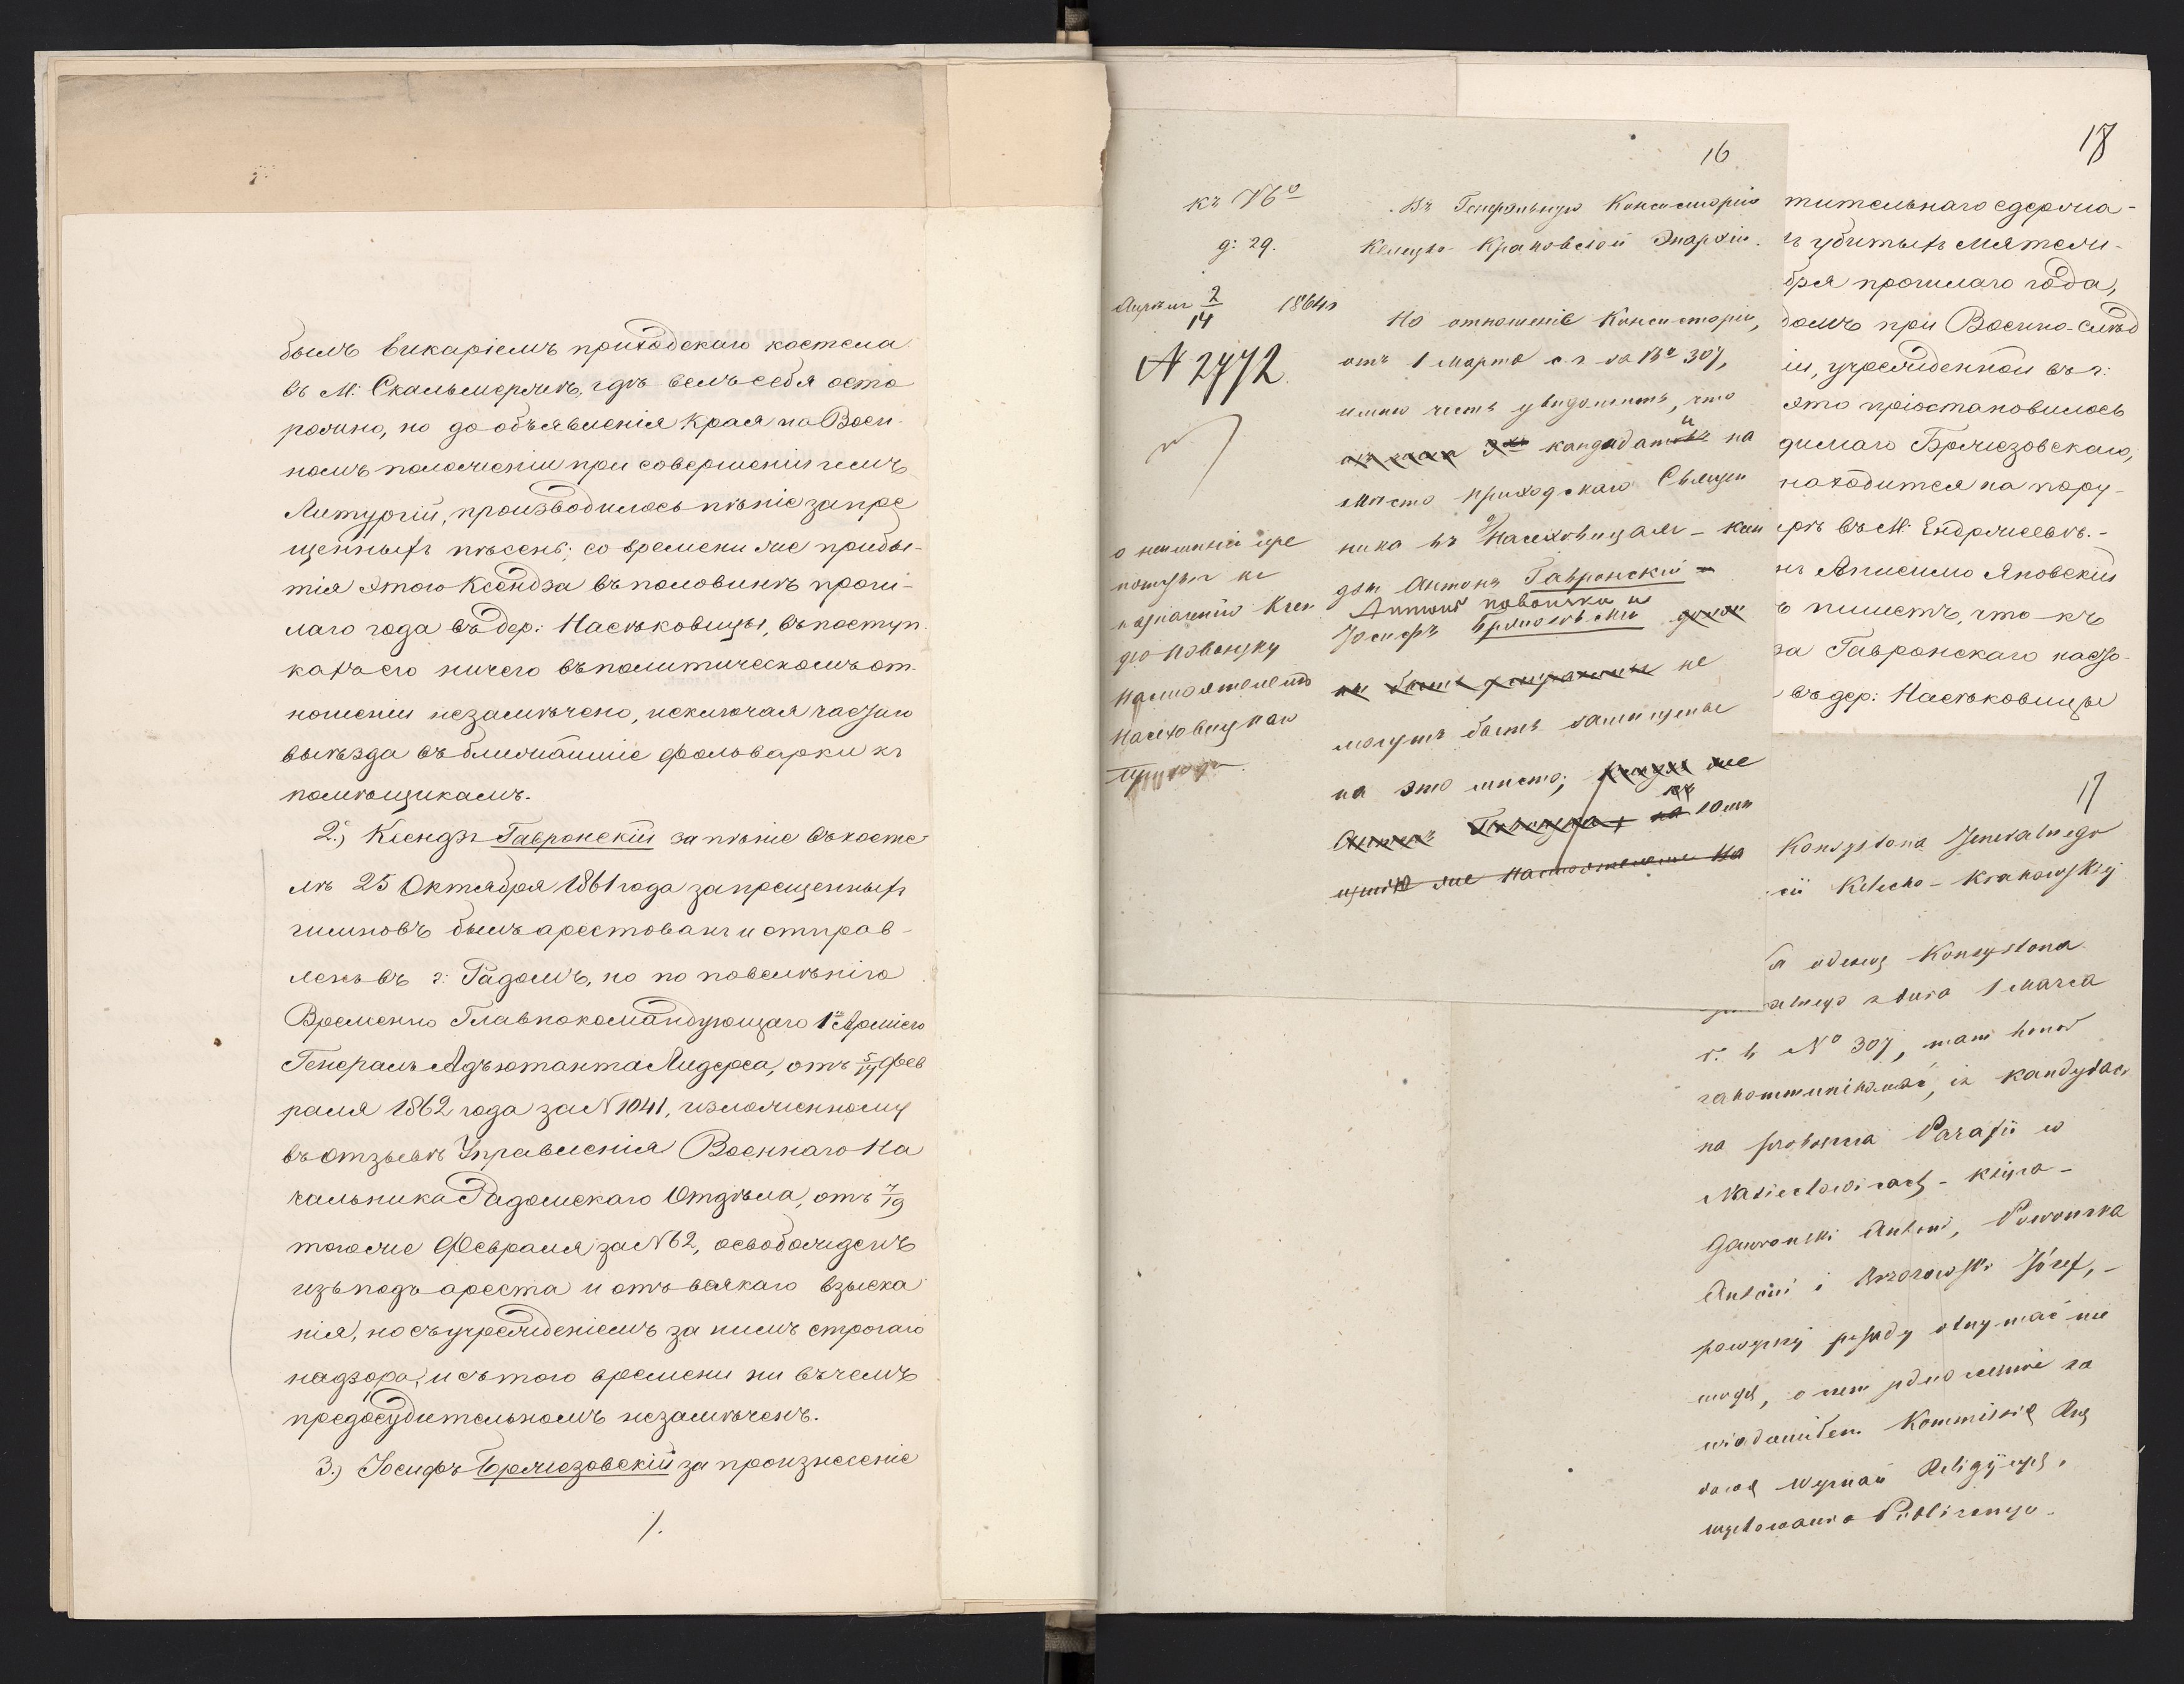 былъ викаріемъ приходскаго костела
въ М: Скальмержѣ, гдѣ велъ себя осто
рожно, но до объявленія Края на Воен
номъ положеніи при совершеніи имъ
Литургіи, производилось пѣніе запре
щенныхъ пѣсень; со времени же прибы-
тія этого Ксендза въ половинѣ прош-
лаго года въ дер: Насѣховицы, въ поступ
кахъ его ничего въ политическомъ от
ношеніи незамѣчено, исключая частаго
выѣзда въ ближайшіе фольварки къ
помѣщикамъ.
2.) Ксендзъ Гавронскій за пѣніе въ косте
лѣ 25 Октября 1861 года запрещенныхъ
гимновъ былъ арестованъ и отправ-
ленъ въ г: Радомъ, но по повелѣнію
Временно Главнокомандующаго 1ю Арміею
Генералъ Адъютанта Лидерса, отъ 5/17 Фев
раля 1862 года за N 1041, изложенному
въ отзывѣ Управленія Военнаго На
чальника Радомскаго Отдѣла, отъ 7/19
тогоже Февраля за N 62, освобожденъ
изъ подъ ареста и отъ всякаго взыска
нія, но съ учрежденіемъ за нимъ строгаго
надзора, и съ того времени ни въ чемъ
предосудительномъ незамѣченъ.
3.) Іосифъ Бржезовскій за произнесеніе
16
къ N 6
д: 29.
Апрѣля 2/14 1864
N 2472
Въ Генеральную Консисторію
Келецко-Краковской Эпархіи.
На отношеніе Консисторіи,
отъ 1 Марта с г за No 307,
имѣю честь увѣдомить, что
кандидаты на
мѣсто приходскаго Священ
ника въ Насѣховицахъ - Ксен
дзы Антонъ Гавронскій
Антонъ Повонзка и
Іосифъ Бржозовскій
не
могутъ быть
на это мѣсто;
18
тительнаго содержа-
ъ убитыхъ мятежи-
бря прошлаго года,
домъ при Военно-слѣд
іи, учрежденной въ г:
это пріостановилось
димаго Бржезовскаго,
находится на пору-
въ М: Ендржеевѣ.-
Яновскій
ъ пишетъ, что къ
за Гавронскаго насто-
въ дер: Насѣховицы
17
Konsystorza Jeneralnego
cii Kielecko-Krakowskiej
odezwę Konsystorza
alnego z dnia 1 Marca
r. b No 307, mam honor
zakommunikować, iż kandydaci
na proboszcza Parafii w
Nasiechowicach - księża -
Gawroński Antoni, Powonzka
Antoni i Brzozowski Józef, -
powyższej posady otrzymać nie
mogą, o czem jednocześnie za
wiadomiłem Kommissię Rzą
dową Wyznań Religijnych,
Publicznego.